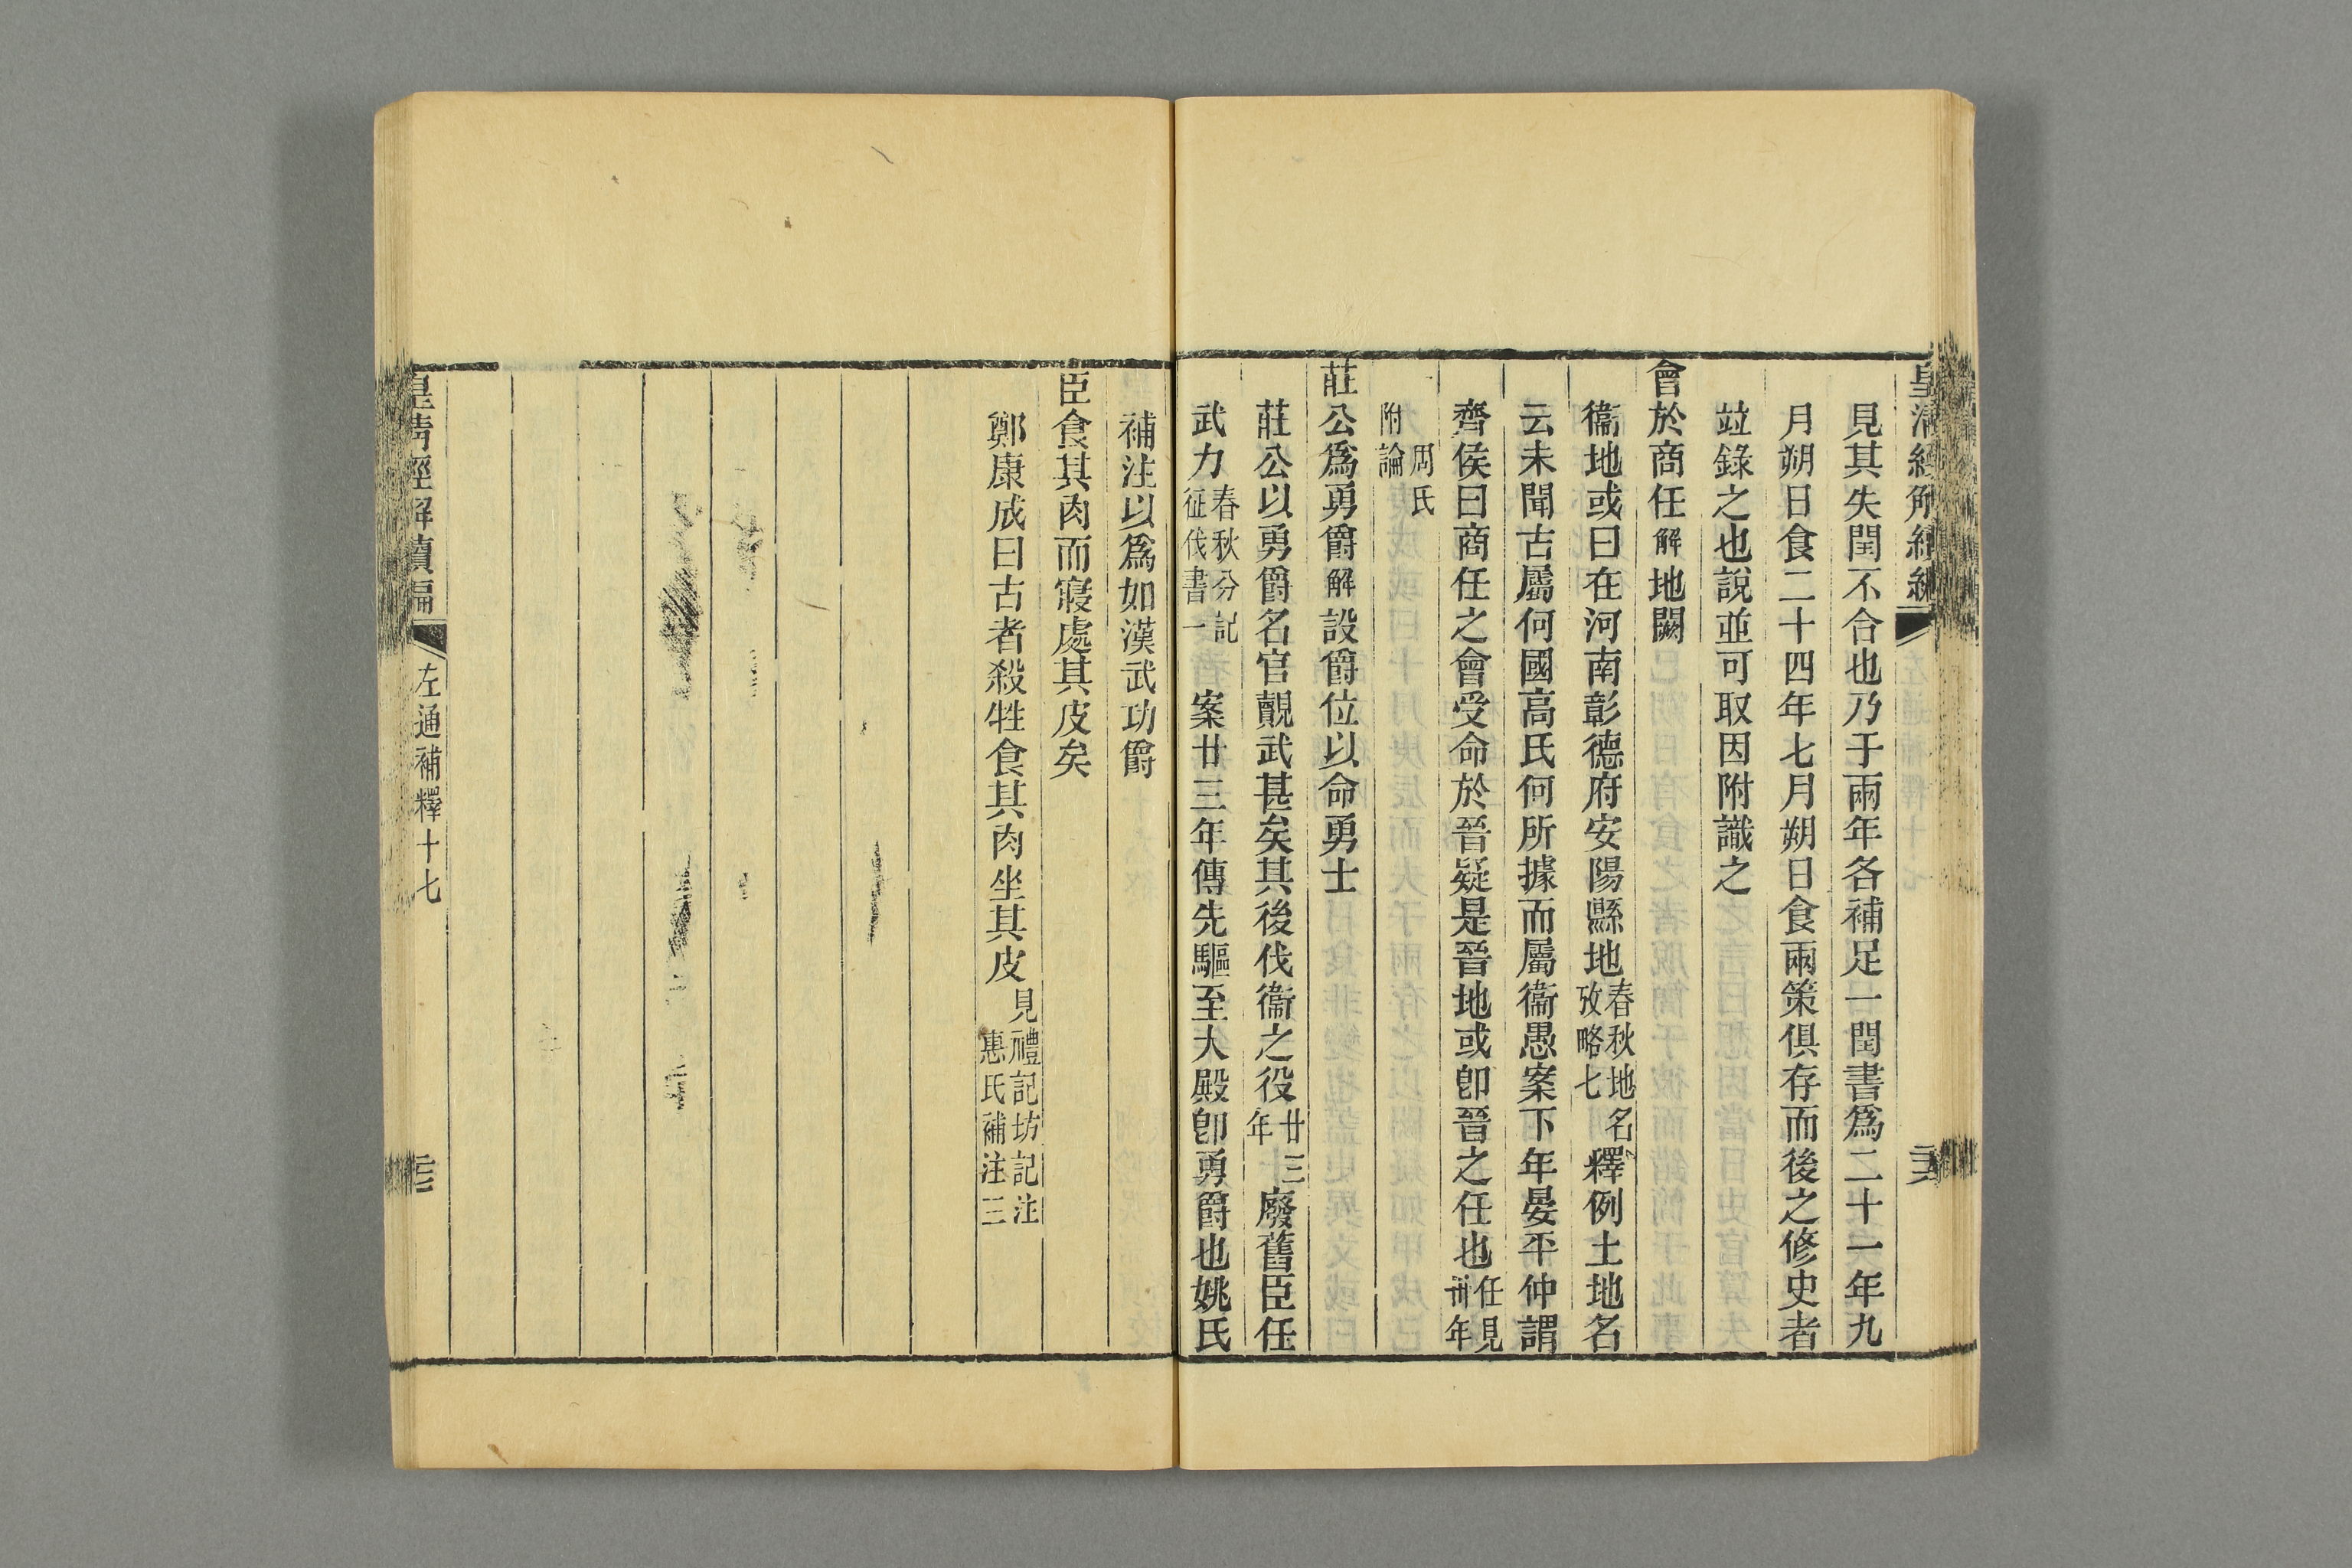 皇清經解續編
見其失閏不合也乃于兩年各補足一閏書爲二十一年九
月朔日食二十四年七月朔日食兩策俱存而後之修史者
竝錄之也說並可取因附識之
會於商任解地闕
衞地或曰在河南彰德府安陽縣地春秋地名攷略七釋例土地名
云未聞古屬何國高氏何所據而屬衞愚案下年晏平仲謂
齊侯曰商任之會受命於晉疑是晉地或卽晉之任也任見卅年
周氏附論
莊公爲勇爵解設爵位以命勇士
莊公以勇爵名官覿武甚矣其後伐衞之役廿三年廢舊臣任
武力春秋分記征伐書一案廿三年傳先驅至大殿卽勇爵也姚氏
補注以爲如漢武功爵
臣食其肉而寢處其皮矣
鄭康成曰古者殺牲食其肉坐其皮見禮記坊記注惠氏補注三
皇清經解續編
左通補釋十七